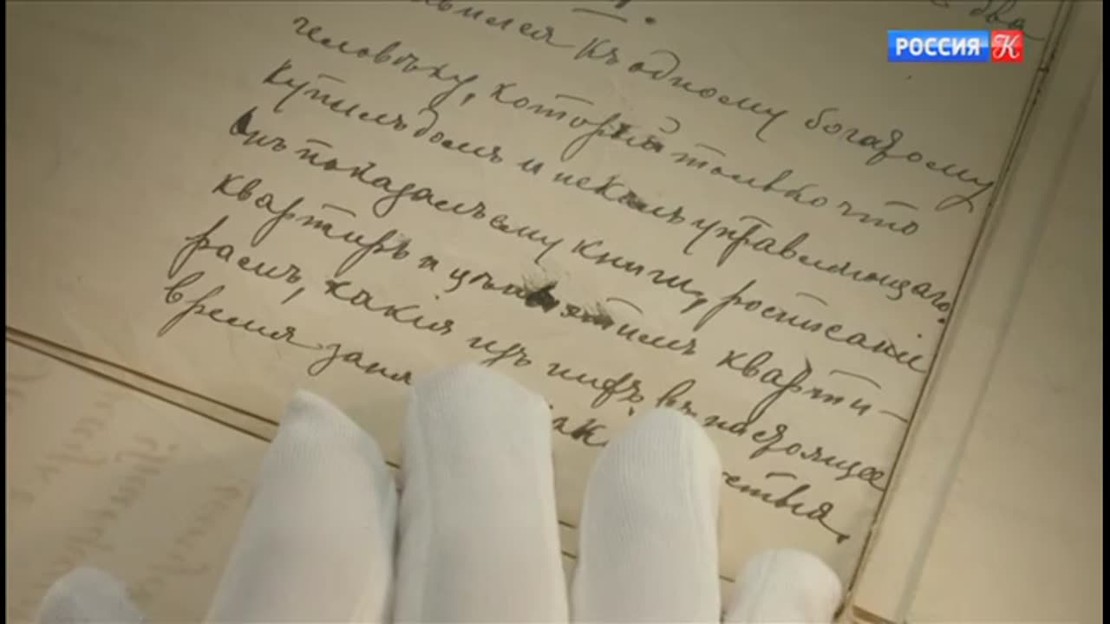 два
РОССИЯ К
вился къ одному богатому
человѣку, который только что
купилъ домъ и искалъ управляющаго.
Онъ показалъ ему книги, росписанiе
квартиръ и цѣны этимъ кварти-
рамъ, какiя изъ нихъ въ настоящее
время заня